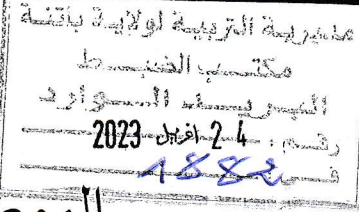 مديرية التربية لولاية باتنة
مكتب الضبط
البريد الوارد
رقم: 24 افريل 2023
في 1882